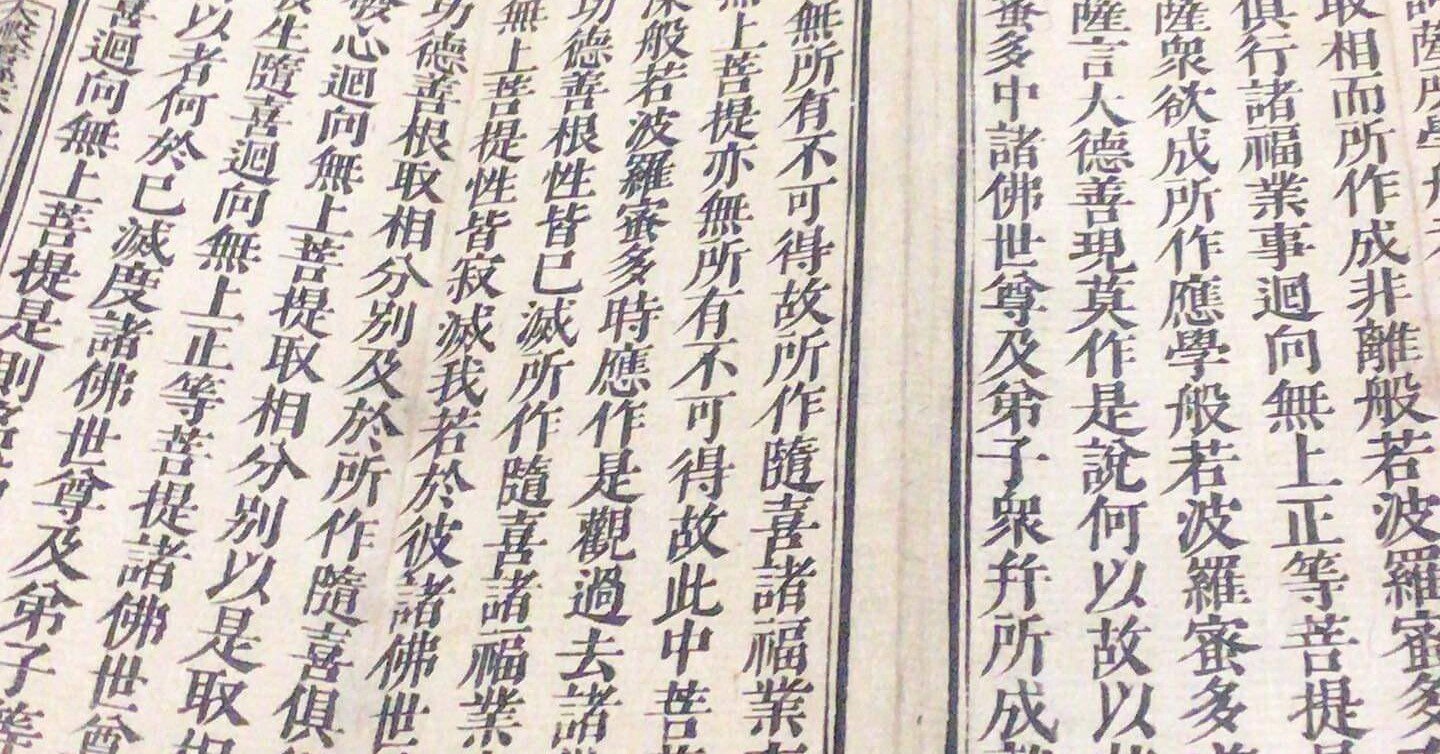 薩所學般
取相而所作成非離般若波羅蜜多
俱行諸福業事迴向無上正等菩提
薩衆欲成所作應學般若波羅蜜多
薩言大德善現莫作是說何以故以
蜜多中諸佛世尊及弟子衆并所成
無所有不可得故所作隨喜諸福業
上菩提亦無所有不可得故此中菩
深般若波羅蜜多時應作是觀過去諸
功德善根性皆已滅所作隨喜諸福業
無上菩提性皆寂滅我若於彼諸佛世
功德善根取相分別及於所作隨喜俱
發心迴向無上菩提取相分別以是取
發生隨喜迴向無上正等菩提諸佛世尊
以者何於已滅度諸佛世尊及弟子等
喜迴向無上菩提是則